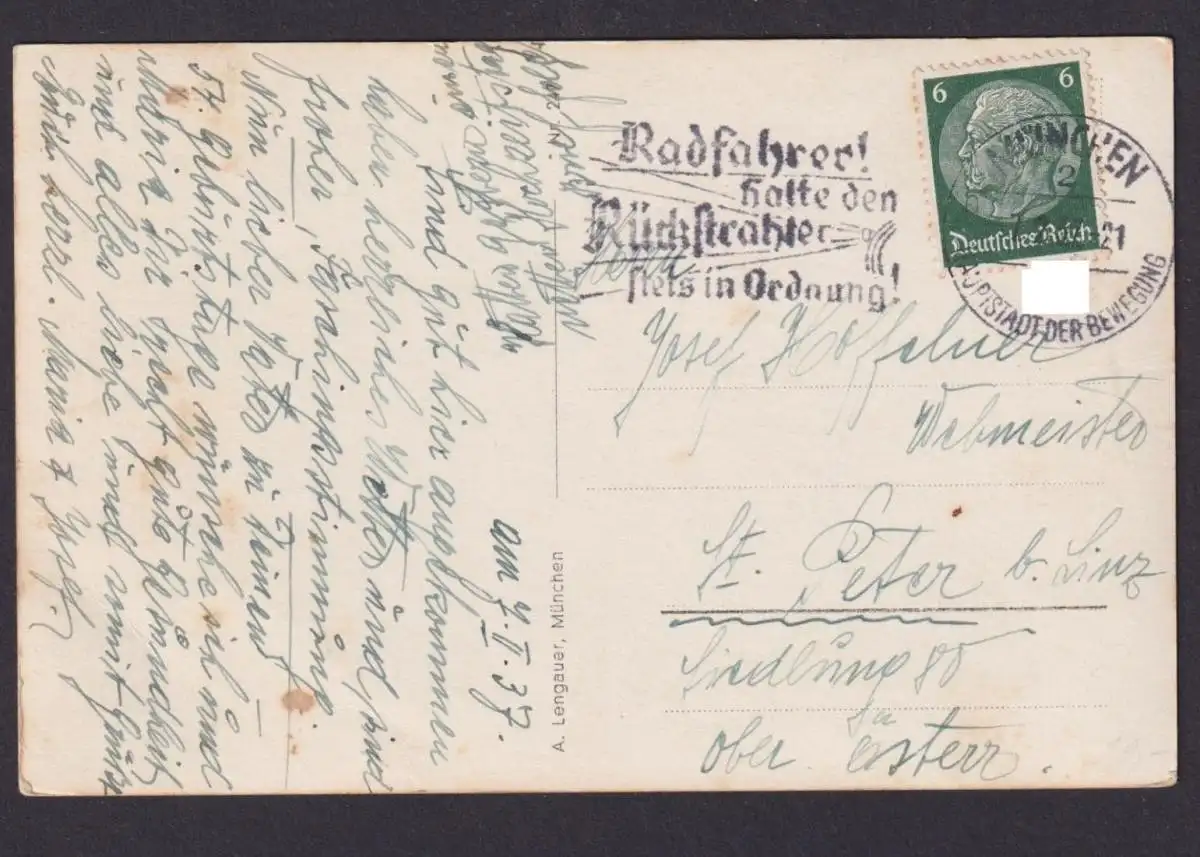 am 7. II. 37.
Sind gut hier angekommen
haben herrliches Wetter und sind
froher Faschingsstimmung.
Nun lieber Vater zu deinem
57. Geburtstage wünsche ich und
Maria dir recht gute Gesundheit
und alles Liebe und somit
herzl. Maria & Josef.
Nr. 24
A. Lengauer, München
Radfahrer!
halte den
Rückstrahler
stets in Ordnung!
6 6
Deutsches Reich
MÜNCHEN
2
21
HAUPTSTADT DER BEWEGUNG
Herrn
Josef Hoffelner
Webmeister
St. Peter b. Linz
Siedlung 80
Ober österr.